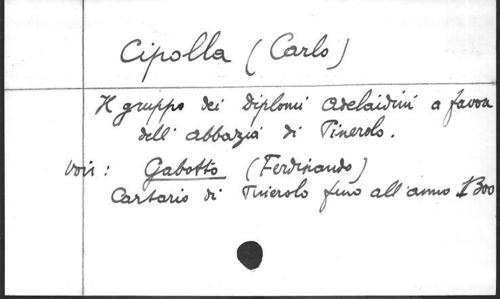 Cipolla (Carlo)
Il gruppo dei diplomi adelaidini a favore
dell' abbazia di Pinerolo.
Voir : Gabotto (Ferdinando)
Cartario di Pinerolo fino all'anno 1300